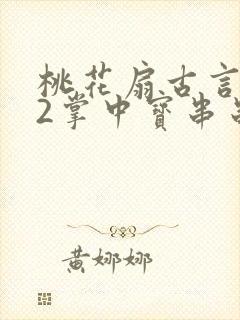 桃花扇古言
2掌中寳串
黄娜娜